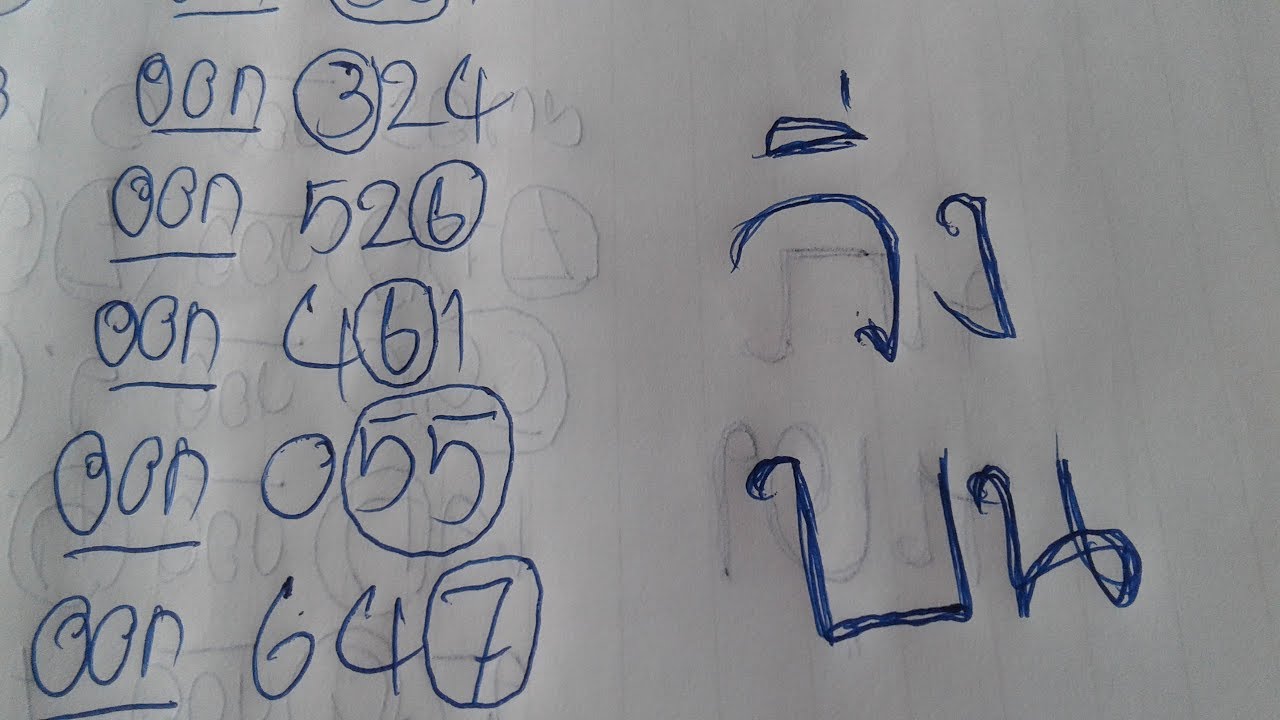 ออก 324
ออก 526
ออก 461
ออก 055
ออก 647
วิ่ง
บน